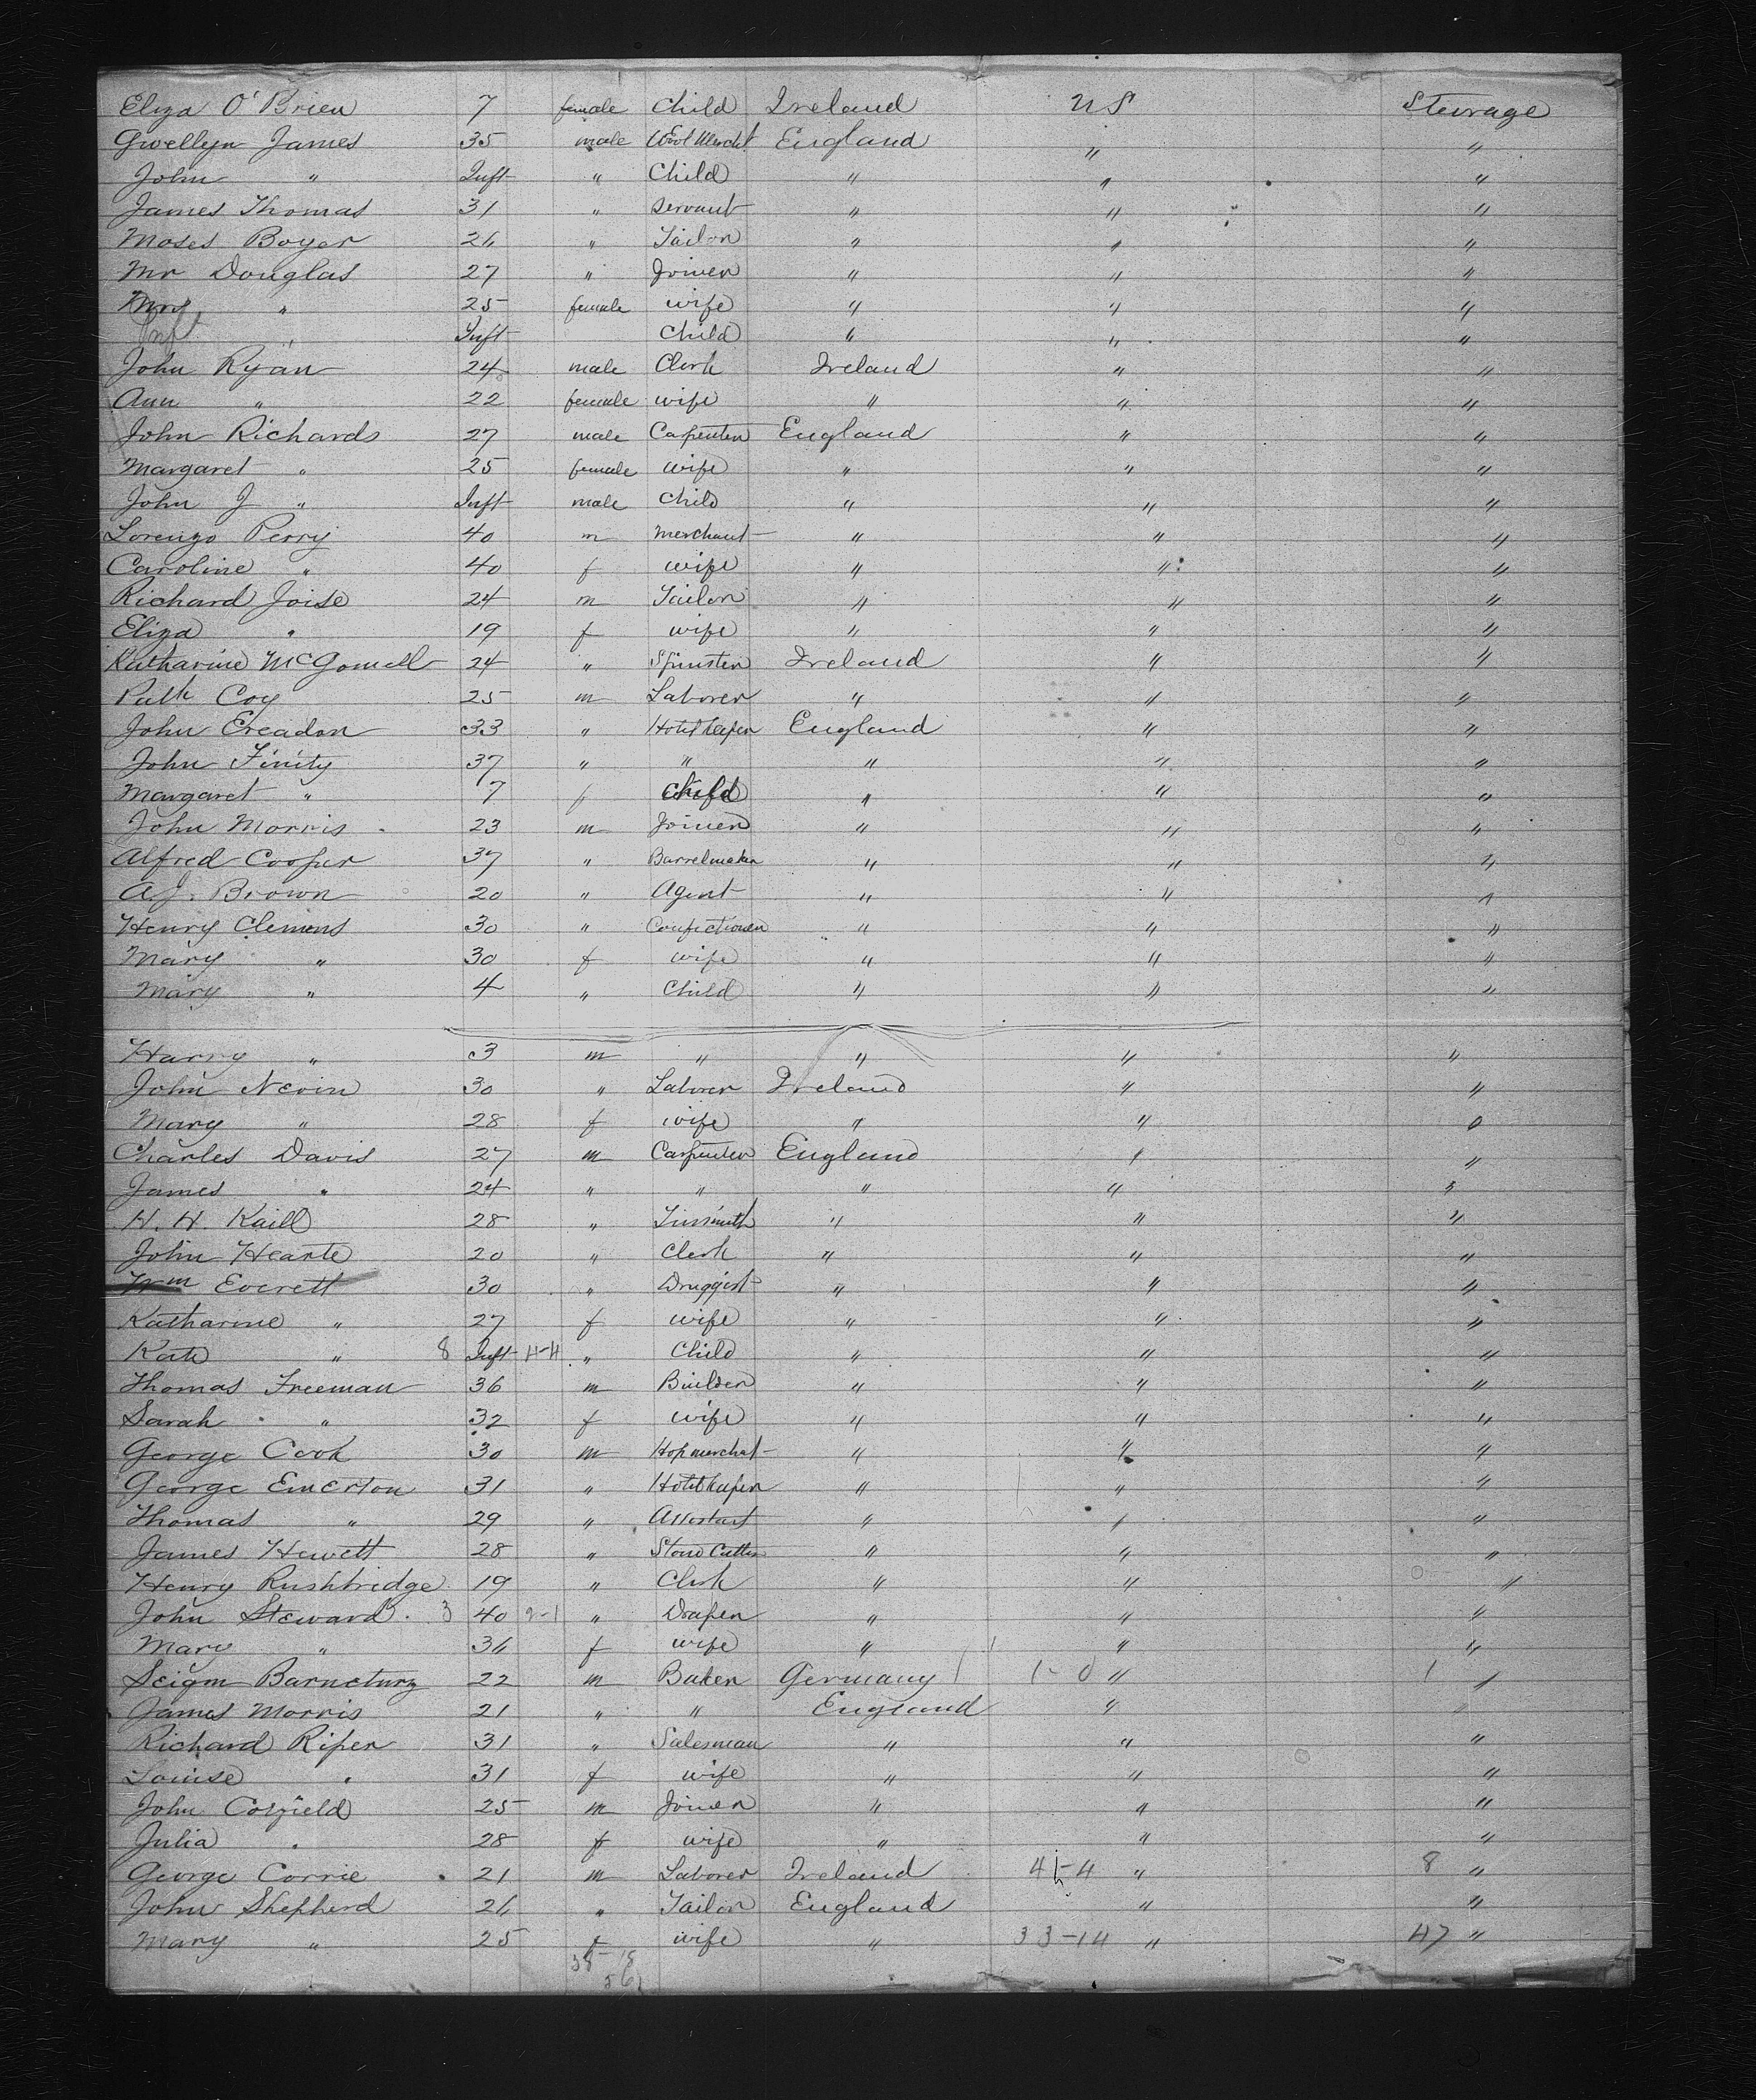 Eliza O'Brien 7 female Child Ireland US Steerage
Gwellyn James 35 male Wool Mercht England " "
John " Inft " Child " " "
James Thomas 31 " Servant " " "
Moses Boyer 26 " Tailor " " "
Mr Douglas 27 " Joiner " " "
Mrs " 25 female wife " " "
Inft " Inft Child " " "
John Ryan 24 male Clerk Ireland " "
Ann " 22 female wife " " "
John Richards 27 male Carpenter England " "
Margaret " 25 female wife " " "
John J " Inft male Child " " "
Lorenzo Perry 40 m merchant " " "
Caroline " 40 f wife " " "
Richard Joise 24 m Tailor " " "
Eliza " 19 f wife " " "
Katharine 24 " Spinster Ireland " "
Patk Coy 25 m Laborer " " "
John Creadon 33 " Hotel keeper England " "
John Finity 37 " " " " "
Margaret " 7 f Child " " "
John Morris 23 m Joiner " " "
Alfred Cooper 37 " Barrelmaker " " "
A.J. Brown 20 " Agent " " "
Henry Clemens 30 " Confectioner " " "
Mary " 30 f wife " " "
Mary " 4 " Child " " "
Harry " 3 m " " " "
John Nevin 30 " Laborer Ireland " "
Mary " 28 f wife " " "
Charles Davis 27 m Carpenter England " "
James " 24 " " " " "
H. H. Kaill 28 " Tinsmith " " "
John Hearte 20 " Clerk " " "
Wm Everett 30 " Druggist " " "
Katharine " 27 f wife " " "
Kate " 8 Inft 4-4 " Child " " "
Thomas Freeman 36 m Builder " " "
Sarah " 32 f wife " " "
George Cook 30 m Hop merchat " " "
George Emerton 31 " Hotel keeper " " "
Thomas " 29 " Assistant " " "
James Hewett 28 " Stone Cutter " " "
Henry Rushbridge 19 " Clerk " " "
John Steward 3 40 2-1 " Draper " " "
Mary " 36 f wife " " "
Seigm 22 m Baker Germany 1-0 " 1 "
James Morris 21 " " England " "
Richard Riper 31 " Salesman " " "
Louise " 31 f wife " " "
John Corfield 25 m Joiner " " "
Julia " 28 f wife " " "
George Corrie 21 m Laborer Ireland 4-4 " 8 "
John Shepherd 26 " Tailor England " "
Mary " 25 f wife " 33-14 " 47 "
38 18
56